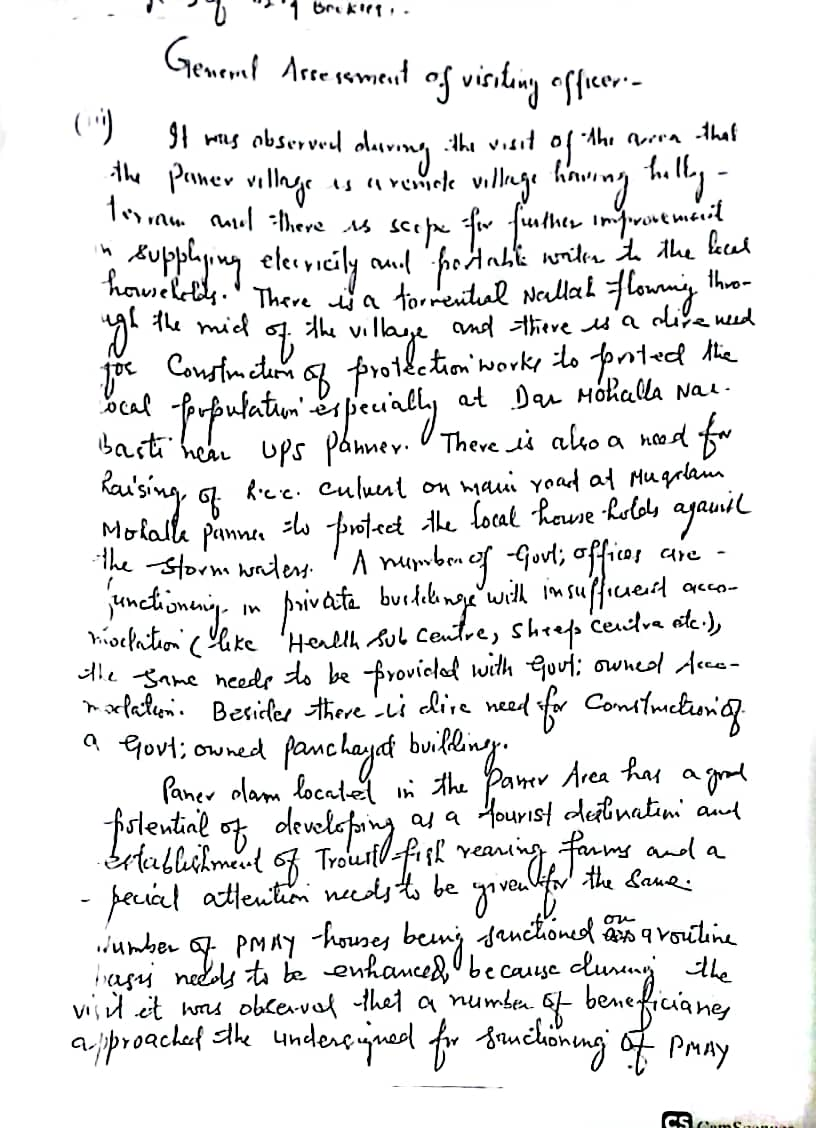 of Brokers.
General Assessment of visiting officer:-
(iii) It was observed during the visit of the area that
the Paner village is a remote village having hilly -
terrain and there is scope for further improvement
in supplying elecricity and portable water to the local
households. There is a torrential Nallah flowing thro-
ugh the mid of the village and there is a dire need
for Construction of protection works to protect the
local population especially at Dar Mohalla Nai-
Basti near UPS Panner. There is also a need for
Raising of R.c.c. culvert on main road at Muqdam
Mohalla Panner to protect the local house-holds against
the storm waters. A number of Govt; offices are -
functioning in private buildings with insufficient acco-
modation (like Health Sub Centre, Sheep centre etc.),
the same needs to be provided with Govt: owned Acco-
modation. Besides there is dire need for Construction of
a Govt; owned panchayat building.
Paner dam located in the Paner Area has a good
potential of developing as a tourist destination and
establishment of Trout fish rearing farms and a
- pecial attention needs to be given for the same.
Number of PMAY houses being sanctioned on a routine
basis needs to be enhanced, because during the
visit it was observed that a number of beneficiaries
approached the undersigned for sanctioning of PMAY
CS CamScanner